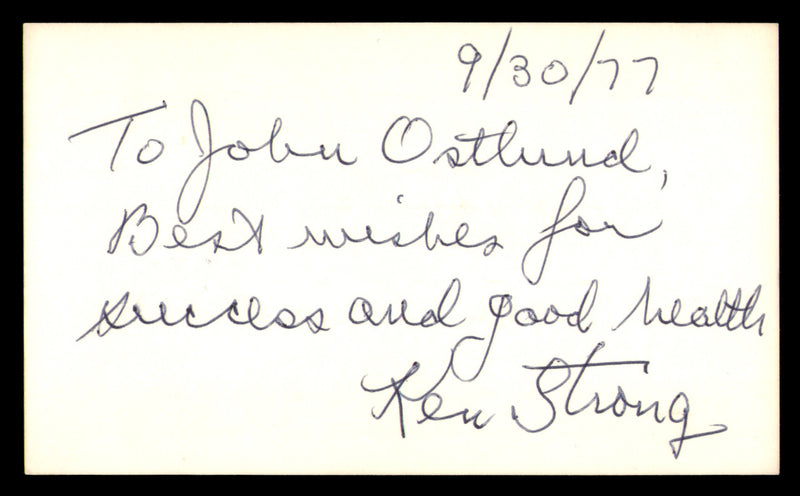 9/30/77
To John Ostlund,
Best wishes for
success and good health
Ken Strong